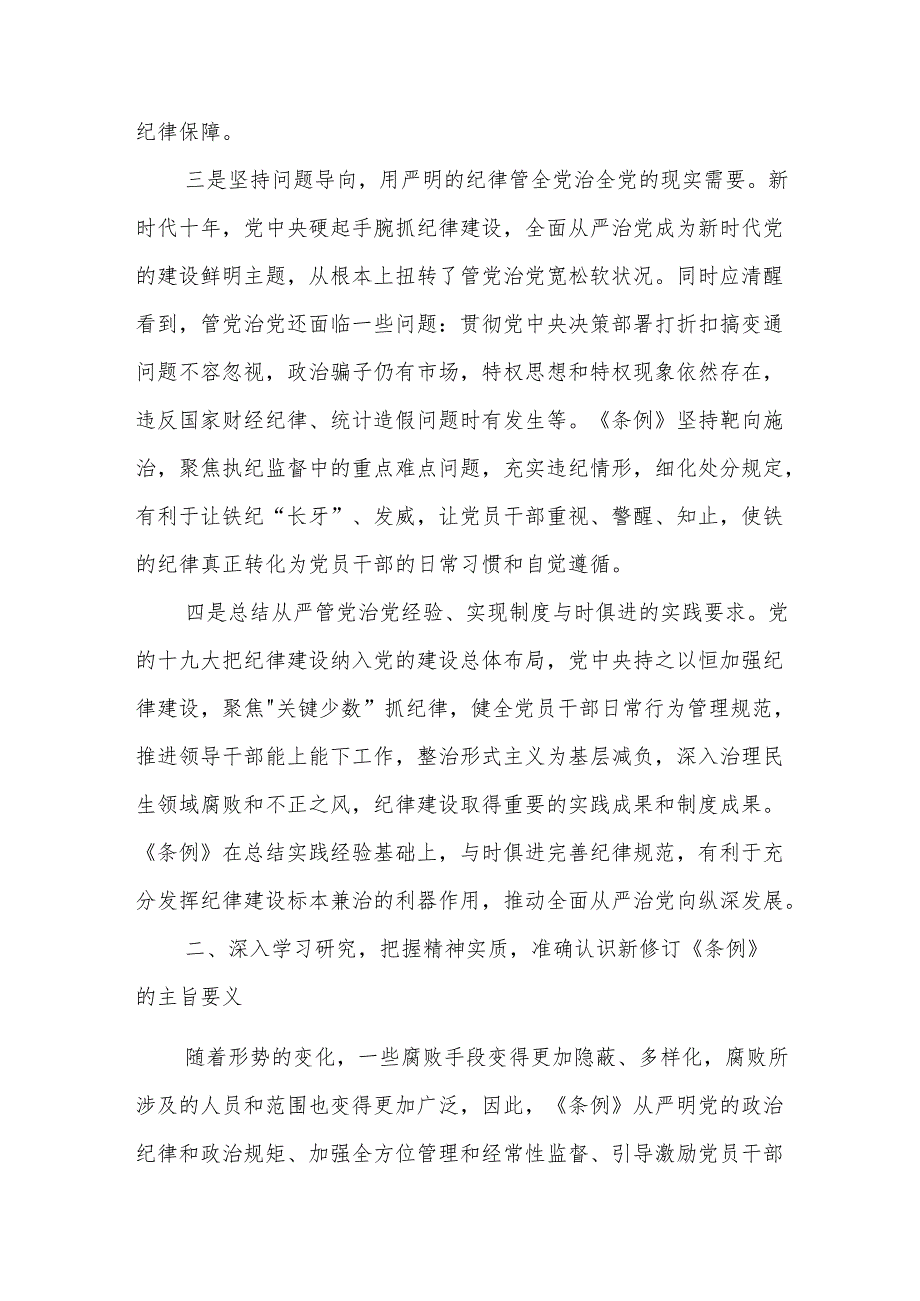 纪律保障。
三是坚持问题导向，用严明的纪律管全党治全党的现实需要。新
时代十年，党中央硬起手腕抓纪律建设，全面从严治党成为新时代党
的建设鲜明主题，从根本上扭转了管党治党宽松软状况。同时应清醒
看到，管党治党还面临一些问题：贯彻党中央决策部署打折扣搞变通
问题不容忽视，政治骗子仍有市场，特权思想和特权现象依然存在，
违反国家财经纪律、统计造假问题时有发生等。《条例》坚持靶向施
治，聚焦执纪监督中的重点难点问题，充实违纪情形，细化处分规定，
有利于让铁纪“长牙”、发威，让党员干部重视、警醒、知止，使铁
的纪律真正转化为党员干部的日常习惯和自觉遵循。
四是总结从严管党治党经验、实现制度与时俱进的实践要求。党
的十九大把纪律建设纳入党的建设总体布局，党中央持之以恒加强纪
律建设，聚焦"关键少数”抓纪律，健全党员干部日常行为管理规范，
推进领导干部能上能下工作，整治形式主义为基层减负，深入治理民
生领域腐败和不正之风，纪律建设取得重要的实践成果和制度成果。
《条例》在总结实践经验基础上，与时俱进完善纪律规范，有利于充
分发挥纪律建设标本兼治的利器作用，推动全面从严治党向纵深发展。
二、深入学习研究，把握精神实质，准确认识新修订《条例》
的主旨要义
随着形势的变化，一些腐败手段变得更加隐蔽、多样化，腐败所
涉及的人员和范围也变得更加广泛，因此，《条例》从严明党的政治
纪律和政治规矩、加强全方位管理和经常性监督、引导激励党员干部